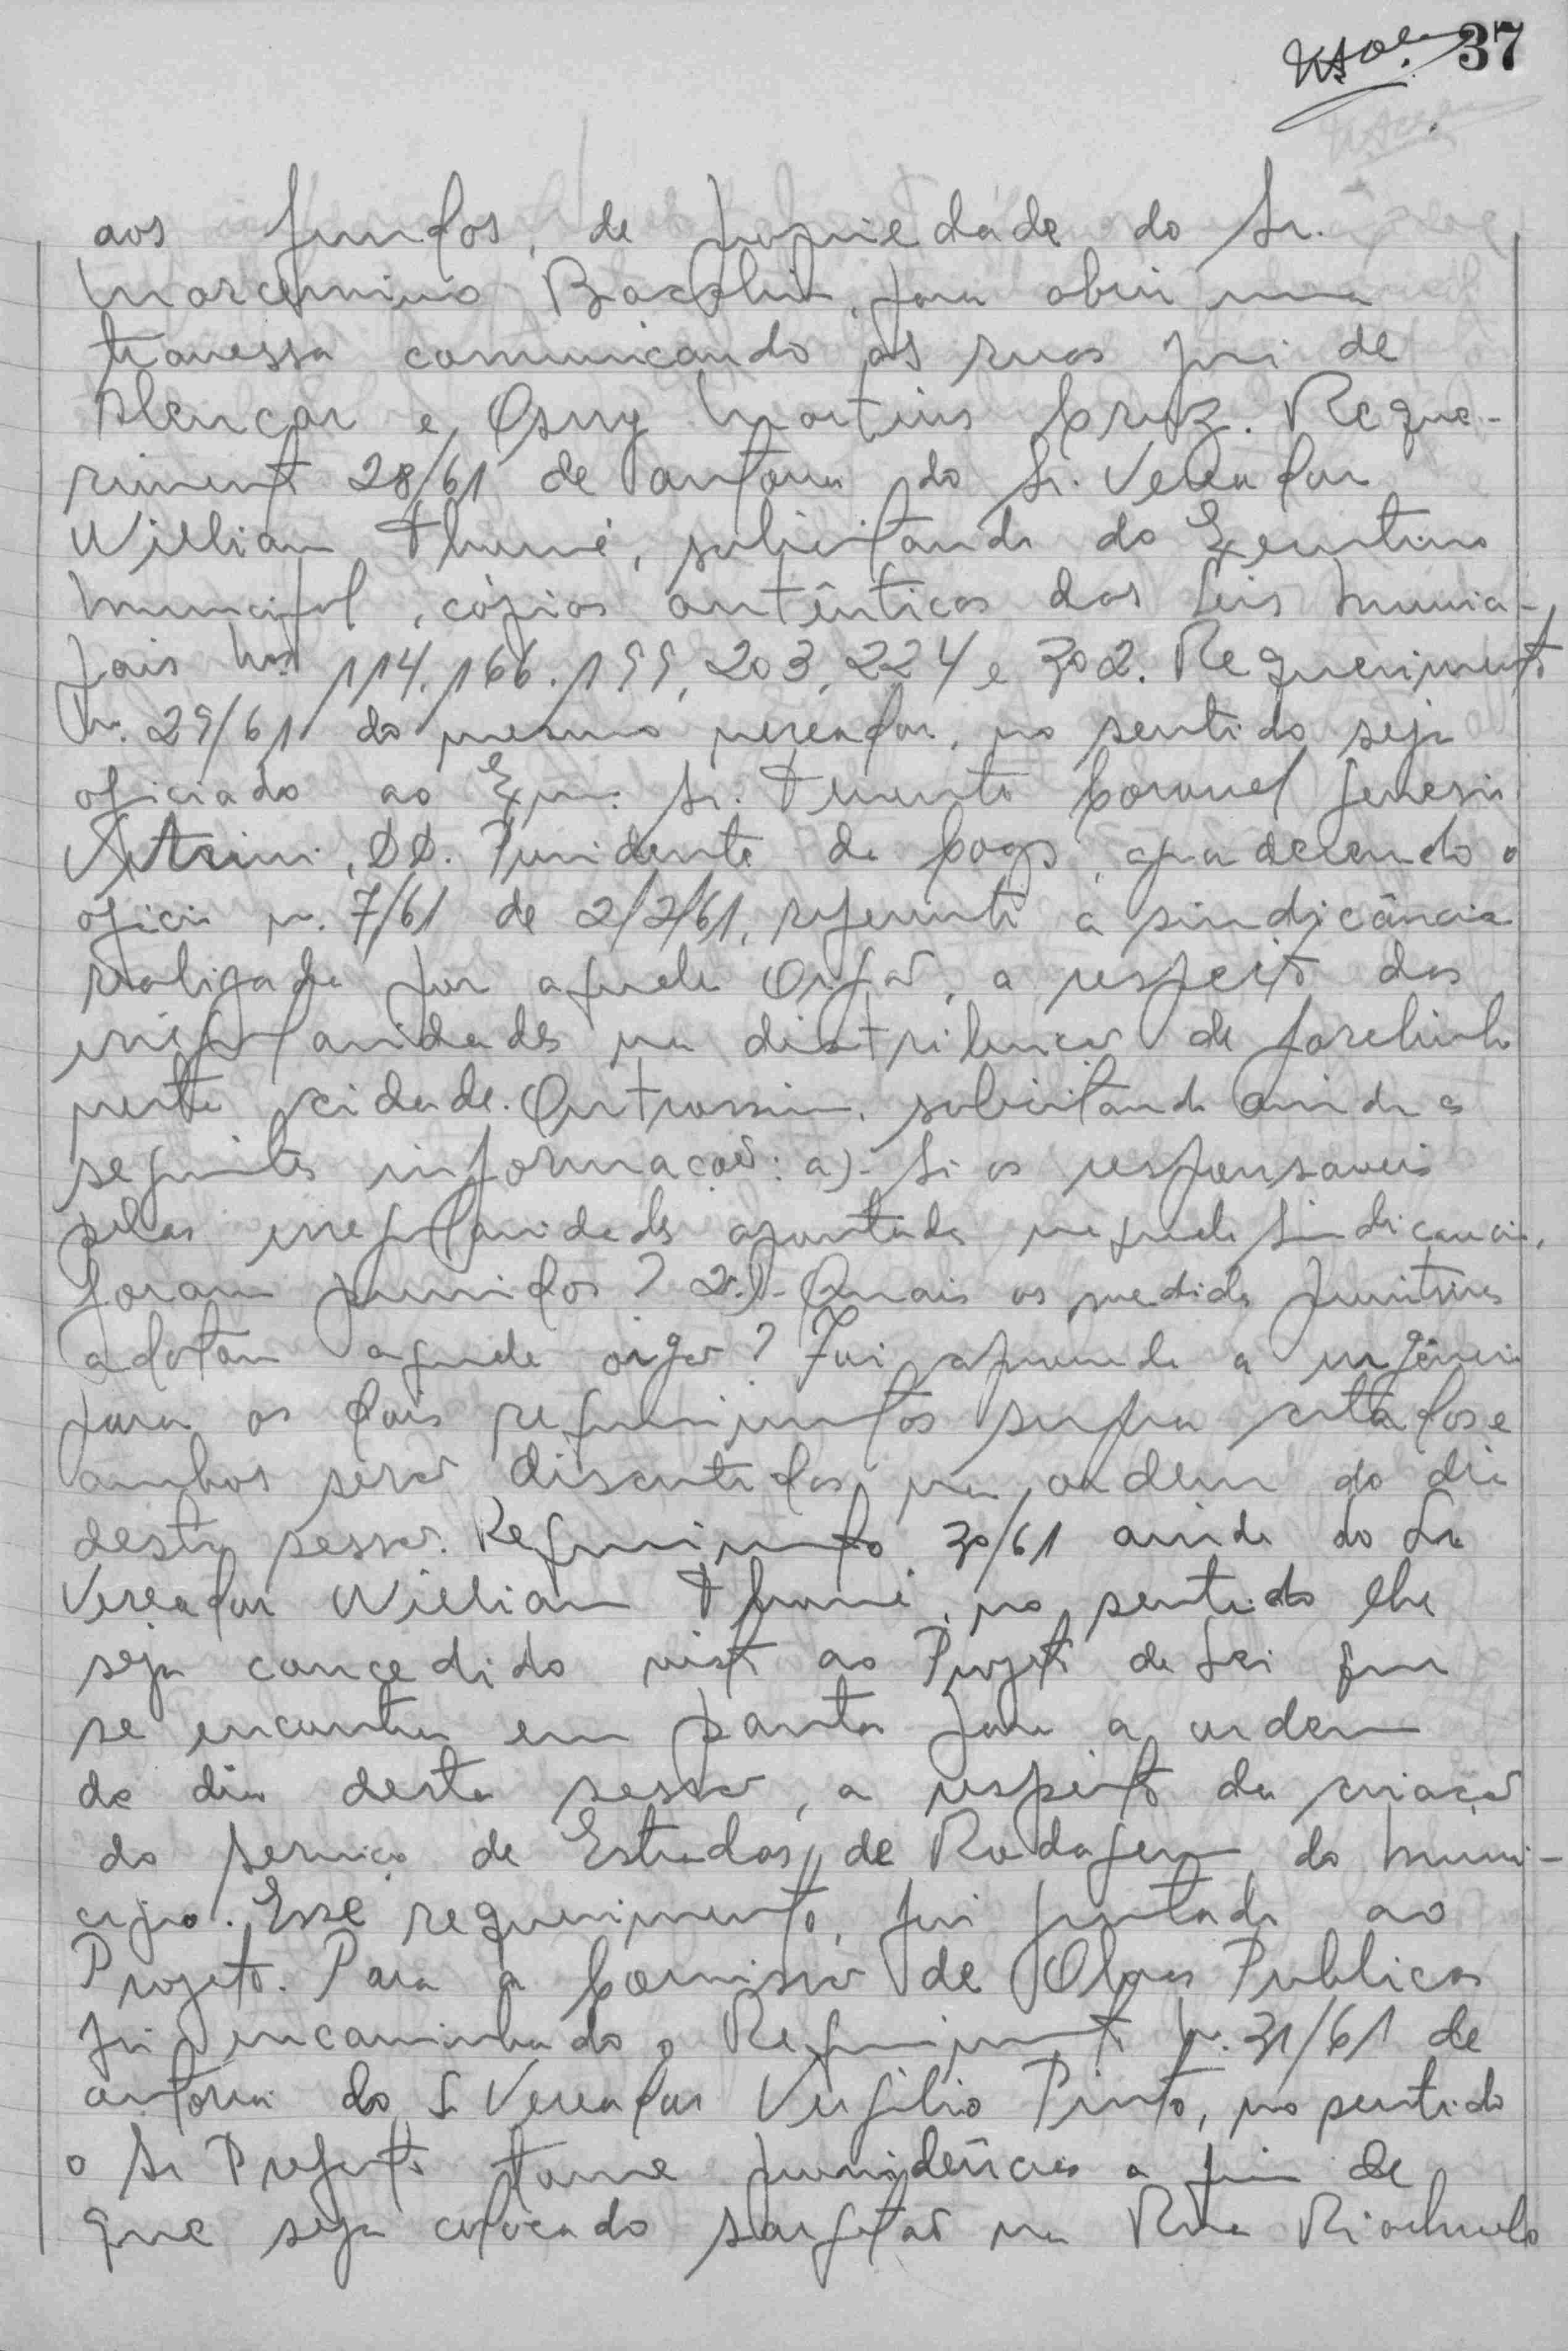 37
aos fundos, de propriedade do Sr.
Marcemino, para abrir uma
travessa comunicando as ruas José de
Alencar e Osny Martins Cruz. Reque-
rimento 28/61 de autoria do Sr. Vereador
William Thomé, solicitando do Executivo
Municipal, cópias autênticas das Leis Munici-
pais Nos 114. 166. 199, 203, 224 e 302. Requerimento
N. 29/61 do mesmo vereador, no sentido seja
oficiado ao Exmo. Sr. Tenente Coronel Genesio
Nitrini, DD. Presidente da Coap, agradecendo o
oficio n. 7/61 de 2/2/61, referente a sindicância
realizada por aquele Orgão, a respeito das
irregularidades na distribuição de farelinho
nesta cidade. Outrossim, solicitando ainda as
seguintes informações: a)- Si os responsaveis
pelas irregularidades apontadas naquela Sindicancia,
foram punidos? 2.)- Quais as medidas punitivas
adotou aquele orgão? Foi aprovada a urgência
para os dois requerimentos supra citados e
ambos serão discutidos na ordem do dia
desta sessão. Requerimento 30/61 ainda do Sr.
Vereador William Thomé, no sentido lhe
seja concedido vista ao Projeto de Lei que
se encontra em pauta para a ordem
do dia desta sessão, a respeito da criação
do serviço de Estradas de Rodagem do Muni-
cipio. Esse requerimento, foi juntado ao
Projeto. Para a Comissão de Obras Publicas
foi encaminhado o Requerimento N. 31/61 de
autoria do Sr Vereador Virgilio Pinto, no sentido
o Sr Prefeito tome providências a fim de
que seja colocado sargetas na Rua Riachuelo